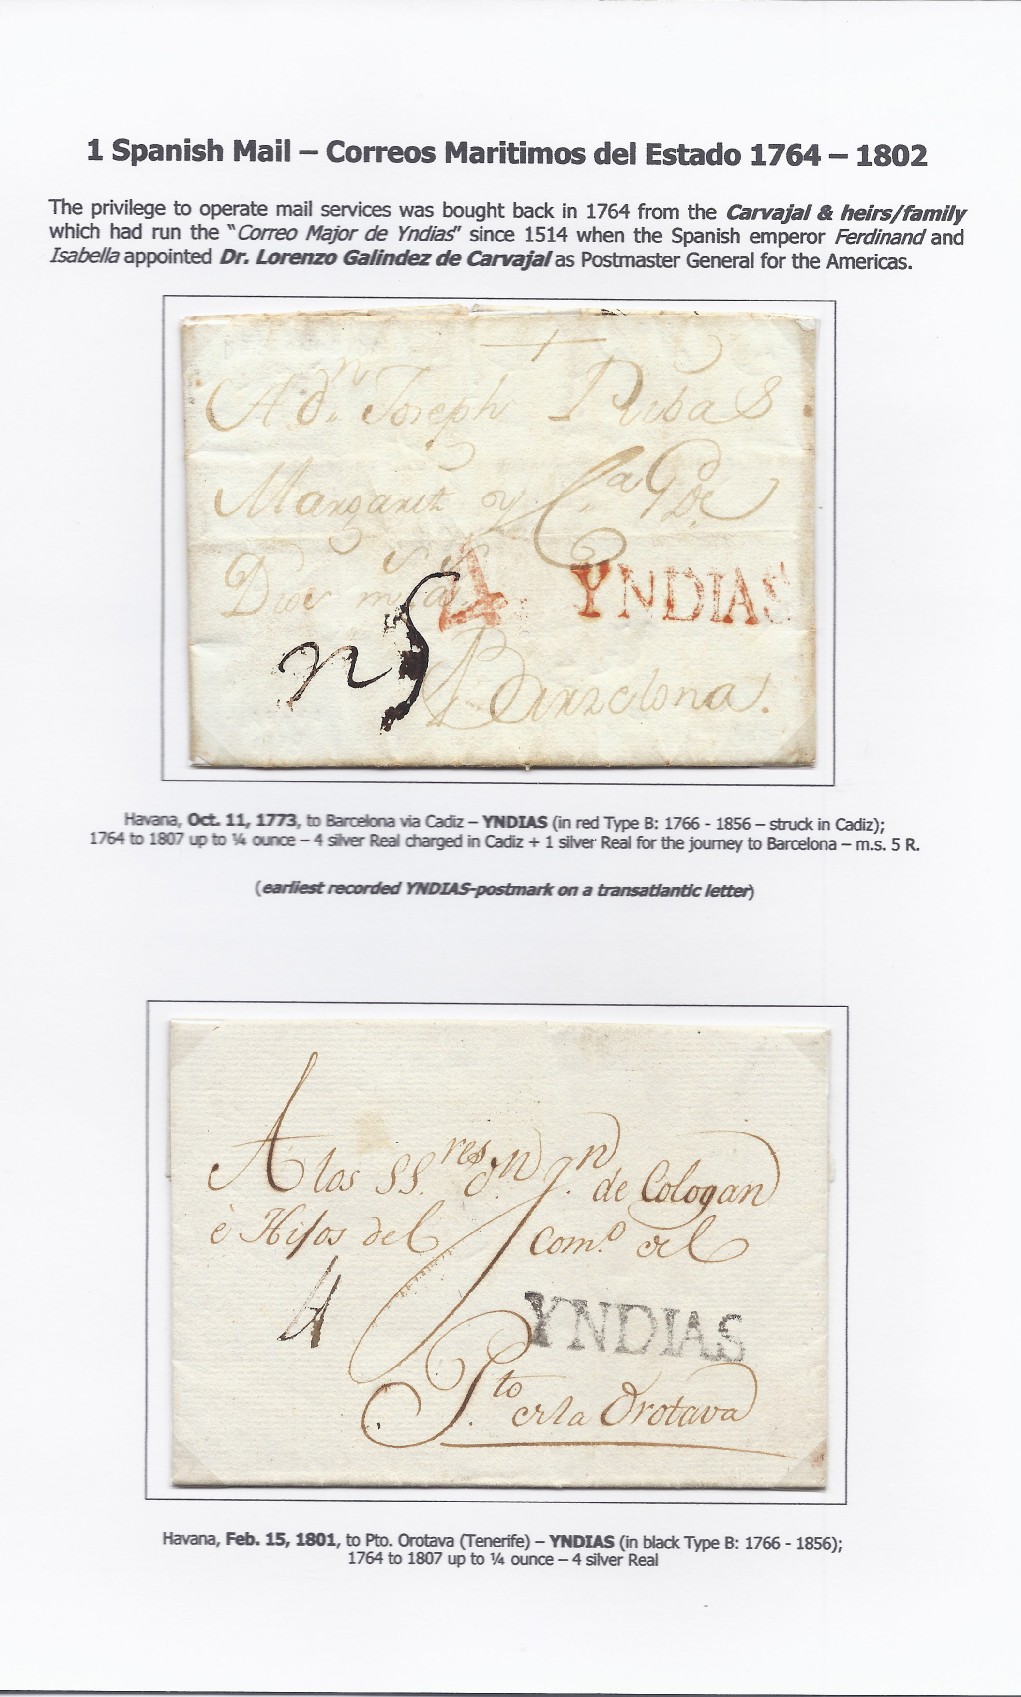 1 Spanish Mail – Correos Maritimos del Estado 1764 – 1802
The privilege to operate mail services was bought back in 1764 from the Carvajal & heirs/family
which had run the "Correo Major de Yndias" since 1514 when the Spanish emperor Ferdinand and
Isabella appointed Dr. Lorenzo Galindez de Carvajal as Postmaster General for the Americas.
A dn. Joseph Ribas
Margarit y Ca. qe.
Dios
4 YNDIAS
5
Barzelona.
Havana, Oct. 11, 1773, to Barcelona via Cadiz – YNDIAS (in red Type B: 1766 - 1856 – struck in Cadiz);
1764 to 1807 up to ¼ ounce – 4 silver Real charged in Cadiz + 1 silver Real for the journey to Barcelona – m.s. 5 R.
(earliest recorded YNDIAS-postmark on a transatlantic letter)
A los SS.res dn. Jn. de Cologan
è Hijos del Com.o
4
YNDIAS
Pto. Orotava
Havana, Feb. 15, 1801, to Pto. Orotava (Tenerife) – YNDIAS (in black Type B: 1766 - 1856);
1764 to 1807 up to ¼ ounce – 4 silver Real